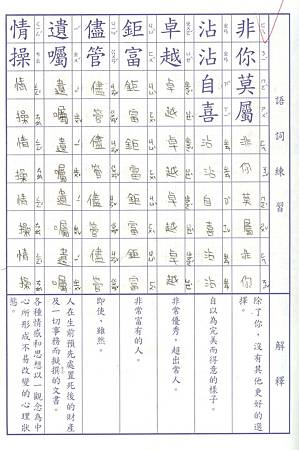 語詞練習
解釋
非你莫屬
非你莫屬
非你莫屬
除了你，沒有其他更好的選
擇。
沾沾自喜
沾沾自喜
沾沾自喜
自以為完美而得意的樣子。
卓越
卓越
卓越
卓越
卓越
卓越
非常優秀，超出常人。
鉅富
鉅富
鉅富
鉅富
鉅富
鉅富
非常富有的人。
儘管
儘管
儘管
儘管
儘管
儘管
即使、雖然。
遺囑
遺囑
遺囑
遺囑
遺囑
遺囑
人在生前預先處置死後的財產
及一切事務而擬撰的文書。
情操
情操
情操
情操
情操
情操
各種情感和思想以一觀念為中
心所形成不易改變的心理狀
態。